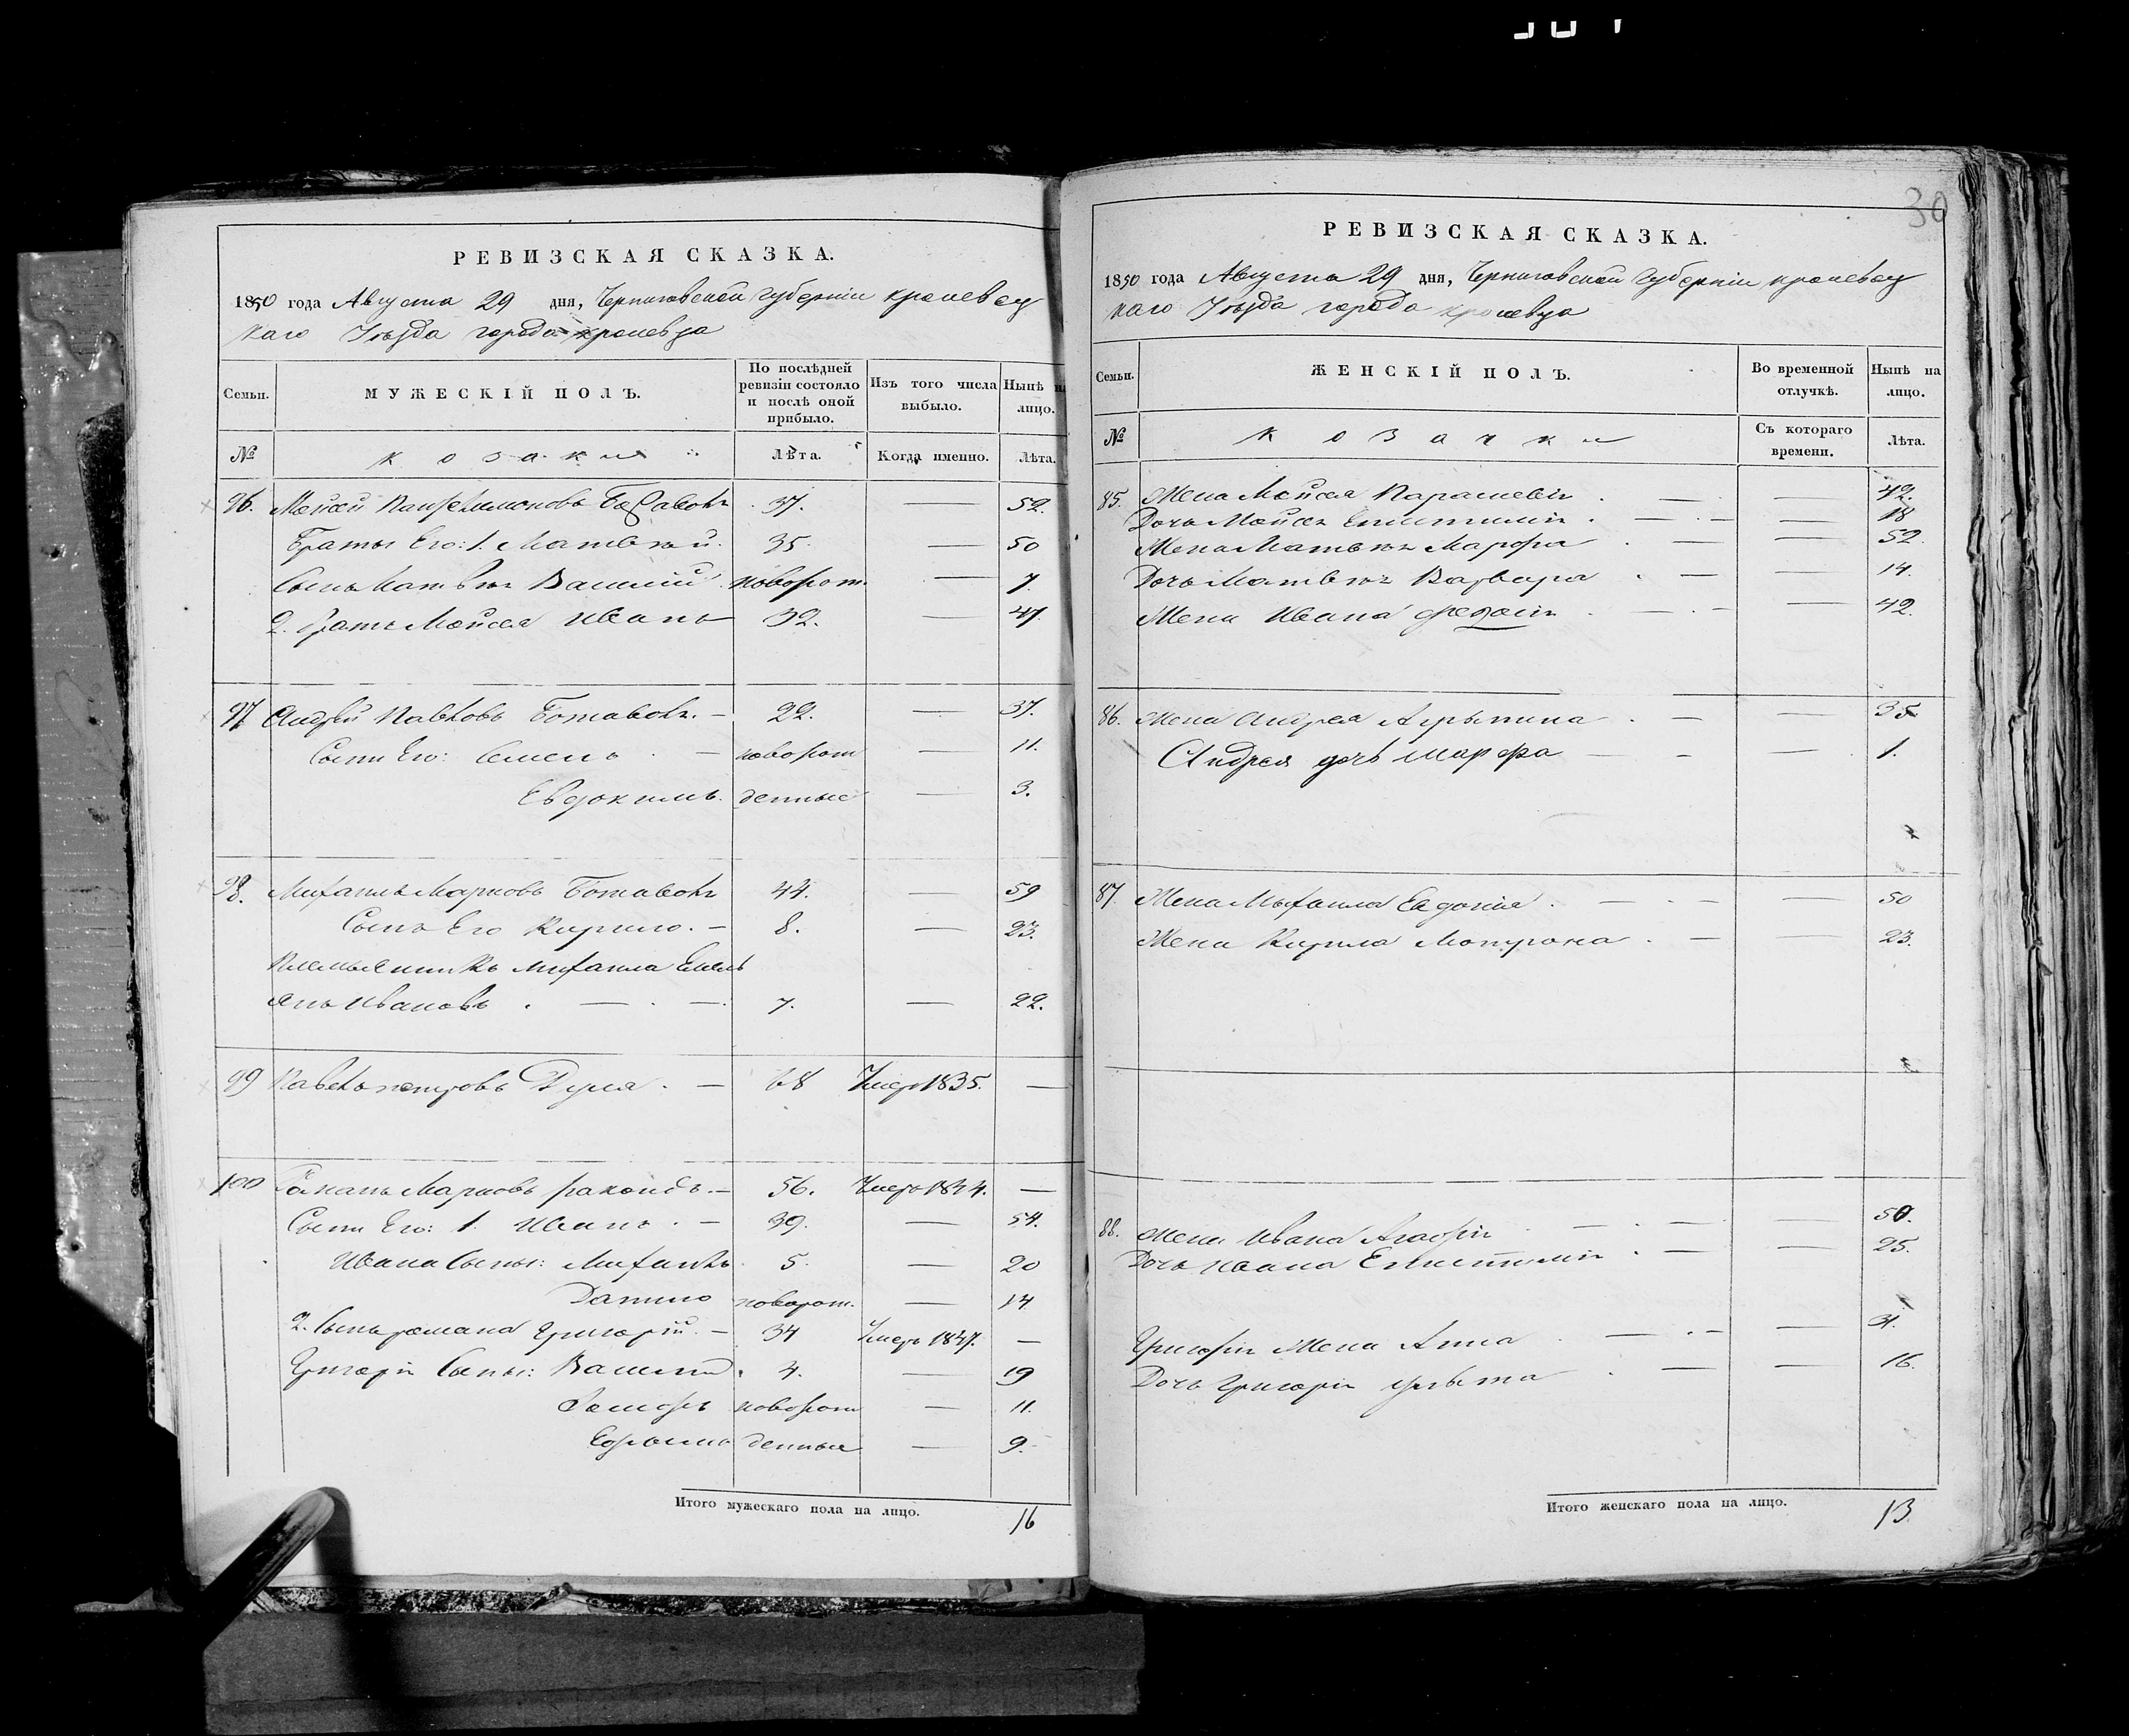 30
РЕВИЗСКАЯ СКАЗКА.
1850 года Августа 29 дня, Черниговской губерніи кролевец
каго Уѣзда города кролевца
Семьи. МУЖЕСКІЙ ПОЛЪ. По послѣдней ревизіи состояло и послѣ оной прибыло. Изъ того числа выбыло. Нынѣ на лицо.
№ козаки Лѣта. Когда именно. Лѣта.
96. Мойсей Панфилионовъ 37. — 52.
Браты Его: 1. Матвѣй. 35. — 50
Сынъ Матвѣя Василій новорож. — 7.
2. братъ Мойсея Иванъ 32. — 47.
97 Андрей Павловъ 22. — 37.
Сыни Его: Семенъ — новорож — 11.
Евдокимъ. денные — 3.
98. Михаилъ Марковъ 44. — 59
Сынъ Его Кирило. — 8. — 23.
Племьеникъ Михаила Емель
янъ Ивановъ . — . — . 7. — 22.
99 Павелъ петровъ . — 68 Умер 1835. —
100 Романъ Марковъ . — 56. Умеръ —
Сыни Его: 1. Иванъ . — 39. — 54.
Ивана Сыны: Михаилъ 5. — 20
Данило новорож. — 14
2. Сынъ романа Григорій. — 34 Умеръ 1847. —
Григорія Сыны: Василій 4. — 19
новорож — 11.
денные — 9.
Итого мужескаго пола на лицо. 16
РЕВИЗСКАЯ СКАЗКА.
1850 года Августа 29 дня, Черниговской Губерніи кролевец
каго Уѣзда города кролевца
Семьи. ЖЕНСКІЙ ПОЛЪ. Во временной отлучкѣ. Нынѣ на лицо.
№ козачки Съ котораго времени. Лѣта.
85. Жена Мойсея Параскевія . — — 42.
Дочь Мойсея Епистимія . — . — — 18
Жена Матвѣя Марфа . — — 52.
Дочь Матвѣя Варвара . — — 14.
Жена Ивана . — . — — 42.
86. Жена Андрея Агрыпина . — — 35
Андрея дочь Марфа — — — . 1.
87. Жена Михаила Евдокія . — . — — 50
Жена Кирила Мотрона . — — 23.
88. Жена Ивана Агафія . — . — — 50.
Дочь Ивана Епистимія . — — 25.
Григорія Жена Анна . — . — — 31.
Дочь Григорія . — — 16.
Итого женскаго пола на лицо. 13